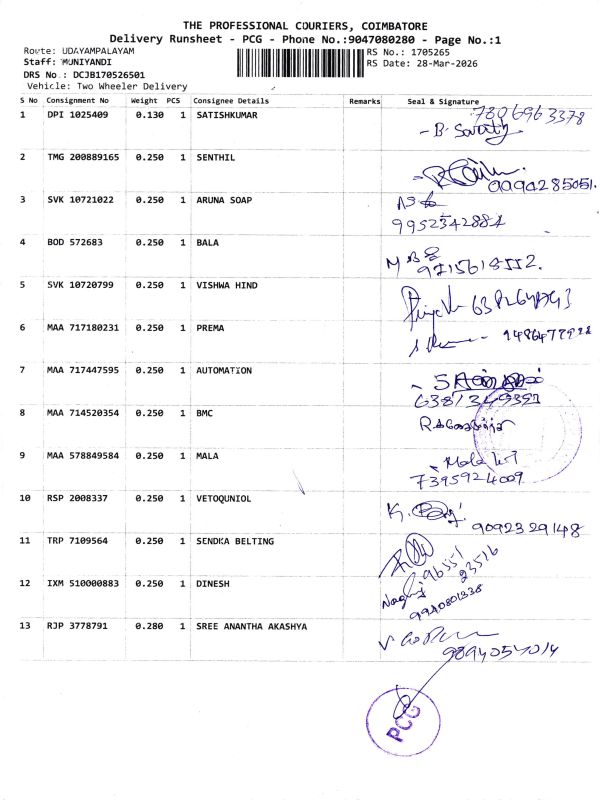 THE PROFESSIONAL COURIERS, COIMBATORE
Delivery Runsheet - PCG - Phone No.:9047080280 - Page No.:1
Route: UDAYAMPALAYAM
Staff: MUNIYANDI
DRS No.: DCJB170526501
Vehicle: Two Wheeler Delivery
RS No.: 1705265
RS Date: 28-Mar-2026
S No Consignment No Weight PCS Consignee Details Remarks Seal & Signature
1 DPI 1025409 0.130 1 SATISHKUMAR 7306963378
2 TMG 200889165 0.250 1 SENTHIL
3 SVK 10721022 0.250 1 ARUNA SOAP
9952342884
4 BOD 572683 0.250 1 BALA
5 SVK 10720799 0.250 1 VISHWA HIND
6 MAA 717180231 0.250 1 PREMA
7 MAA 717447595 0.250 1 AUTOMATION
8 MAA 714520354 0.250 1 BMC
9 MAA 578849584 0.250 1 MALA
7395924009
10 RSP 2008337 0.250 1 VETOQUNIOL
9092329148
11 TRP 7109564 0.250 1 SENDKA BELTING
96551
23516
12 IXM 510000883 0.250 1 DINESH
9940801338
13 RJP 3778791 0.280 1 SREE ANANTHA AKASHYA
9894057014
PCG